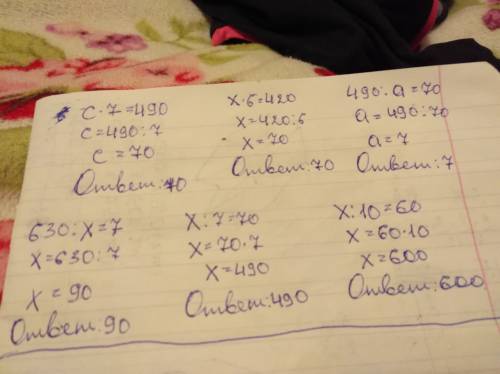 c·7=490
c=490:7
c=70
Ответ:70
x·6=420
x=420:6
x=70
Ответ:70
490:a=70
a=490:70
a=7
Ответ:7
630:x=7
x=630:7
x=90
Ответ:90
x:7=70
x=70·7
x=490
Ответ:490
x:10=60
x=60·10
x=600
Ответ:600